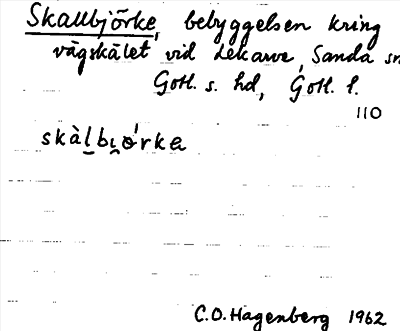 Skallbjörke, bebyggelsen kring
vägskälet vid Lekarve, Sanda sn
Gotl. s. hd, Gotl. l.
110
skàl̠bi̯ørka
C.O. Hagenberg 1962